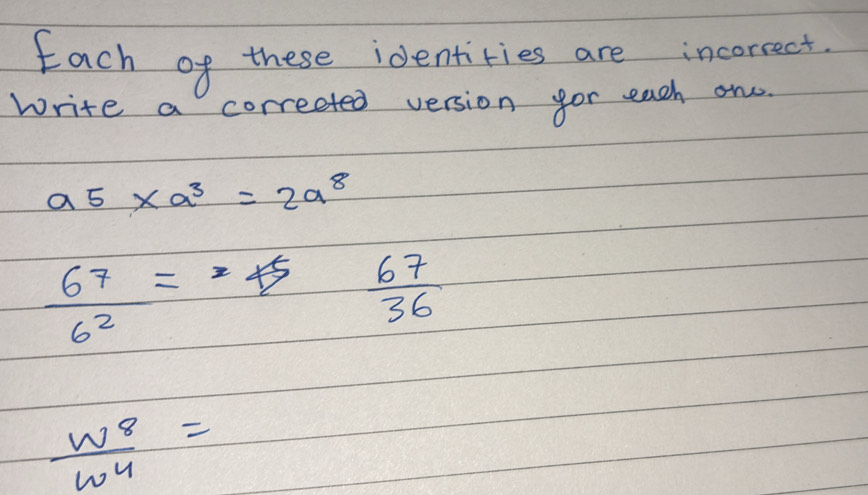 Each of these identities are incorrect.
Write a corrected version for each one.
a5 × a³ = 2a⁸
67/6² = 67/36
w⁸/w⁴ =